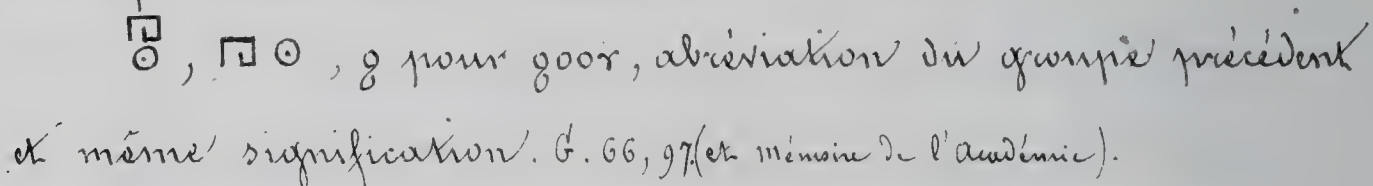 𓉔𓇳, 𓉔𓇳, ϩ pour ϩⲟⲟⲩ, abréviation du groupe précédent
et même signification. G. 66, 97. (et mémoire de l'académie).